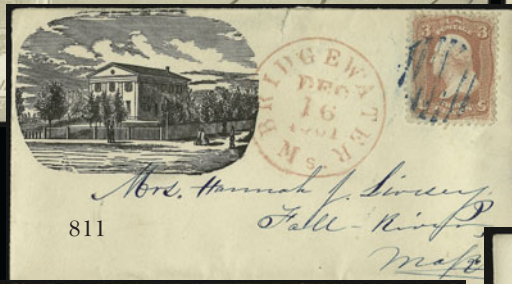 BRIDGEWATER Ms
DEC
16
1861
3 3
U S
Mrs. Hannah J. Livsey
Fall-River
Mass
811